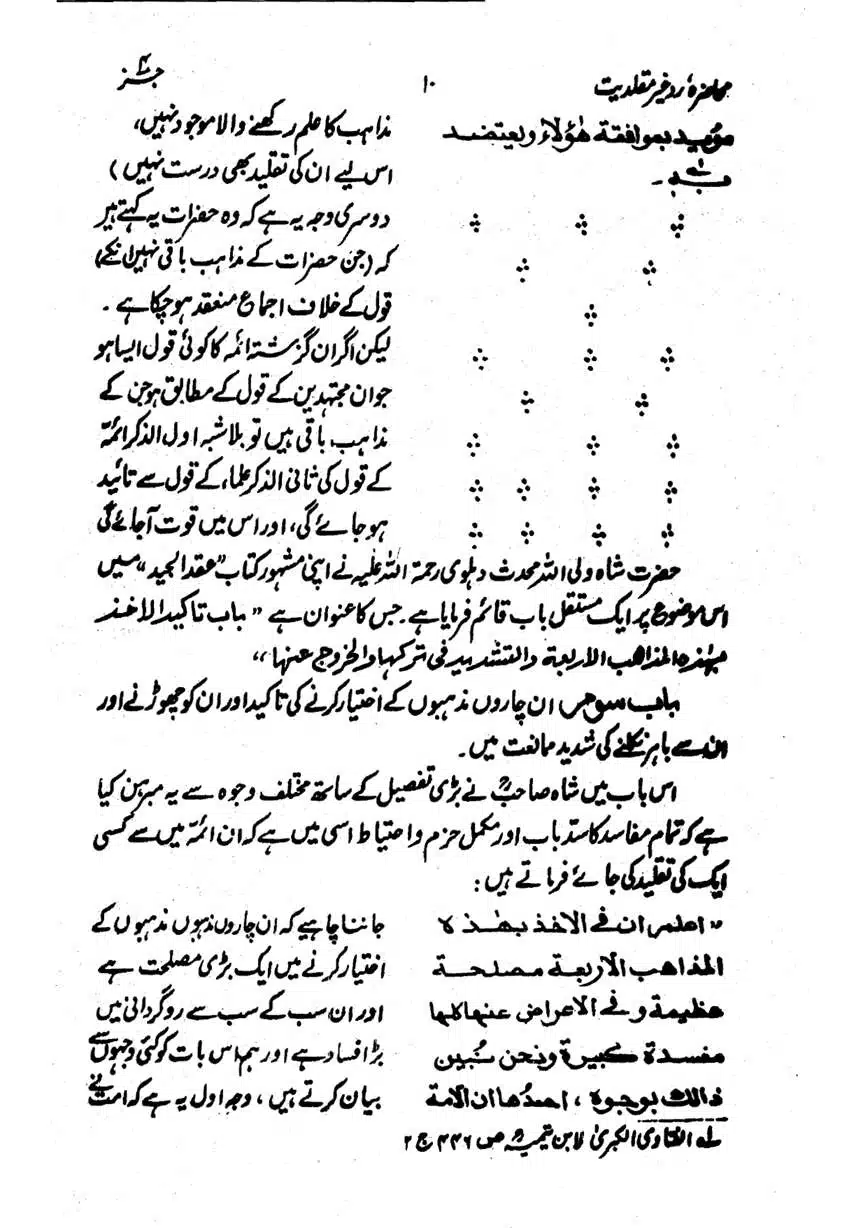 محاضرۂ ردِ غیر مقلدیت
۱۰
جزء ۲
مؤيد بموافقة هؤلاء ويعتضد
به۔
مذاہب کا علم رکھنے والا موجود نہیں،
اس لیے ان کی تقلید بھی درست نہیں)
دوسری وجہ یہ ہے کہ وہ حضرات یہ کہتے ہیں
کہ (جن حضرات کے مذاہب باقی نہیں) انکے
قول کے خلاف اجماع منعقد ہو چکا ہے۔
لیکن اگر ان گزشتہ ائمہ کا کوئی قول ایسا ہو
جو ان مجتہدین کے قول کے مطابق ہو جن کے
مذاہب باقی ہیں تو بلا شبہ اول الذکر ائمّہ
کے قول کی ثانی الذکر علماء کے قول سے تائید
ہو جائے گی، اور اس میں قوت آجائے گی
حضرت شاہ ولی اللہ محدث دہلوی رحمۃ اللہ علیہ نے اپنی مشہور کتاب "عقد الجید" میں
اس موضوع پر ایک مستقل باب قائم فرمایا ہے۔ جس کا عنوان ہے "باب تاکید الاخذ
بهٰذه المذاهب الاربعة والتشديد فى تركها والخروج عنها"
باب سوم، ان چاروں مذہبوں کے اختیار کرنے کی تاکید اور ان کو چھوڑنے اور
ان سے باہر نکلنے کی شدید ممانعت میں۔
اس باب میں شاہ صاحبؒ نے بڑی تفصیل کے ساتھ مختلف وجوہ سے یہ مبرہن کیا
ہے کہ تمام مفاسد کا سدِ باب اور مکمل حزم و احتیاط اسی میں ہے کہ ان ائمہ میں سے کسی
ایک کی تقلید کی جائے فرماتے ہیں:
"اعلم ان فى الاخذ بهٰذه
المذاهب الاربعة مصلحة
عظيمة وفى الاعراض عنها كلها
مفسدة كبيرة ونحن نُبين
ذالك بوجوه، احدُها ان الامة
جاننا چاہیے کہ ان چاروں مذہبوں کے
اختیار کرنے میں ایک بڑی مصلحت ہے
اور ان سب کے سب سے روگردانی میں
بڑا فساد ہے اور ہم اس بات کو کئی وجہوں سے
بیان کرتے ہیں، وجہ اول یہ ہے کہ امت نے
لہ الفتاوی الکبریٰ لابن تیمیہؒ ص ۴۴۶ ج ۲